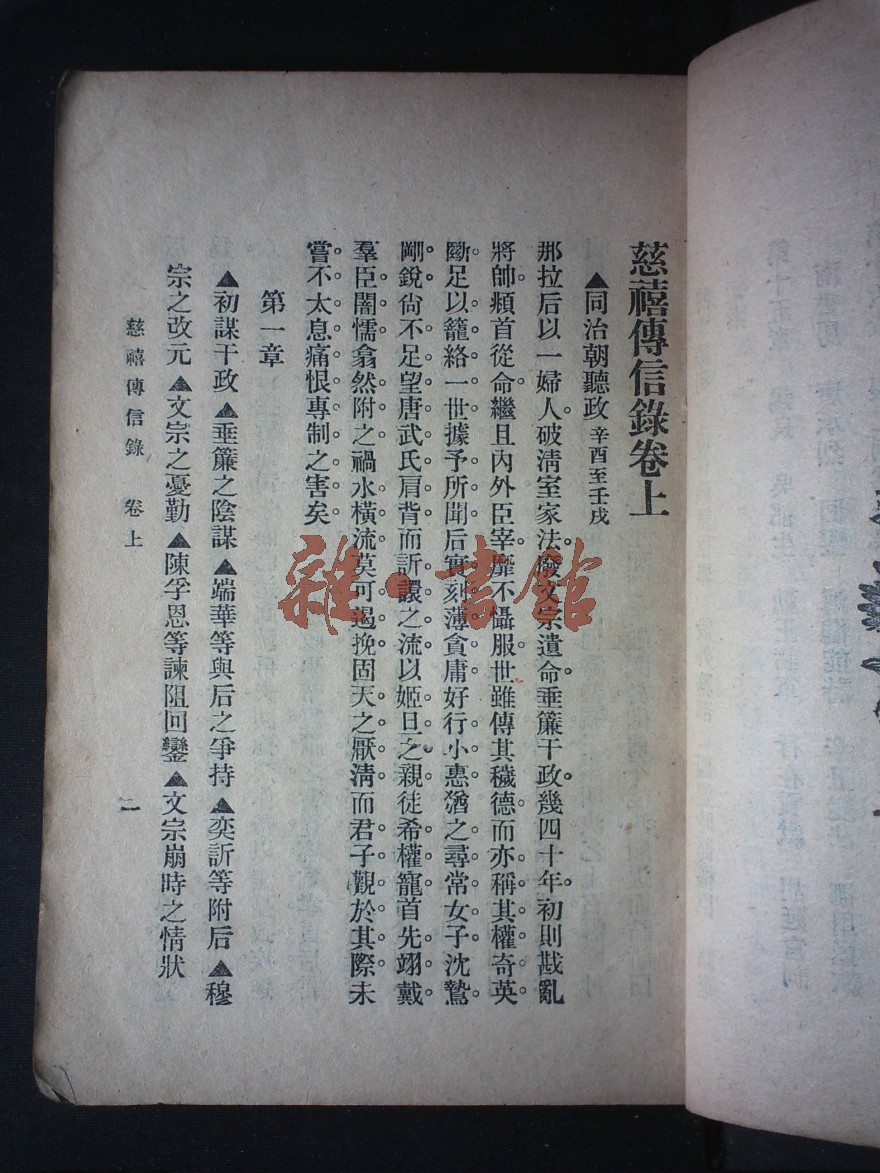 慈禧傳信錄卷上
▲同治朝聽政 辛酉至壬戌
那拉后以一婦人。破淸室家法。廢文宗遺命。垂簾干政。幾四十年。初則戡亂
將帥。頫首從命。繼且內外臣宰。靡不懾服。世雖傳其穢德。而亦稱其權奇英
斷。足以籠絡一世。據予所聞。后實刻薄貪庸。好行小惠。猶之尋常女子。沈鷙
剛銳。尙不足望唐武氏肩背。而訢譞之流。以姬旦之親。徒希權寵。首先翊戴。
羣臣闇懦。翕然附之。禍水橫流。莫可遏挽。固天之厭淸。而君子觀於其際。未
嘗不太息痛恨專制之害矣。
第一章
▲初謀干政▲垂簾之陰謀▲端華等與后之爭持▲奕訢等附后▲穆
宗之改元▲文宗之憂勤▲陳孚恩等諫阻回鑾▲文宗崩時之情狀
慈禧傳信錄 卷上
雜·書館